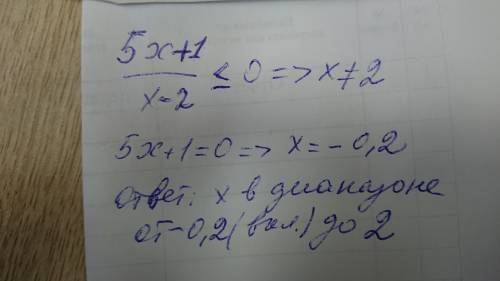 5x+1
x-2 ≤ 0 => x≠2
5x+1=0 => x=-0,2
ответ: x в диапазоне
от -0,2 (вкл.) до 2